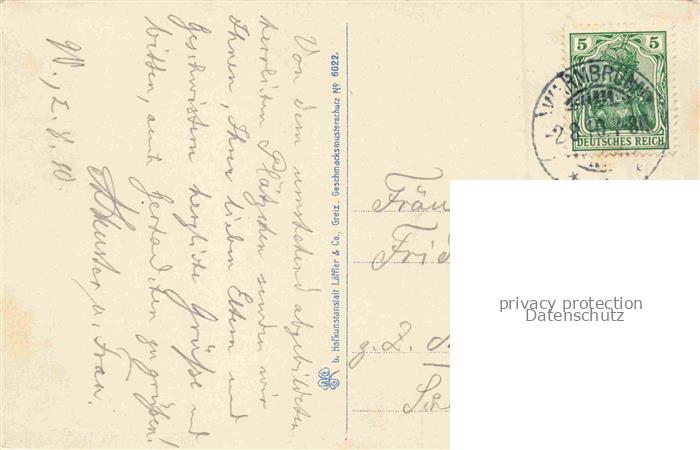 Von dem umstehend abgebildeten
herrlichen Plätzchen senden wir
Ihnen, Ihren lieben Eltern und
Geschwistern herzliche Grüße und
bitten, auch zu grüßen!
W., 2. 8. 10
Schuster u. Frau.
b. Hofkunstanstalt Löffler & Co., Greiz. Geschmacksmusterschutz No 6622.
5 5
DEUTSCHES REICH
WARMBRUNN
2.8.10
Fräu
Frid
z. Z.
privacy protection
Datenschutz